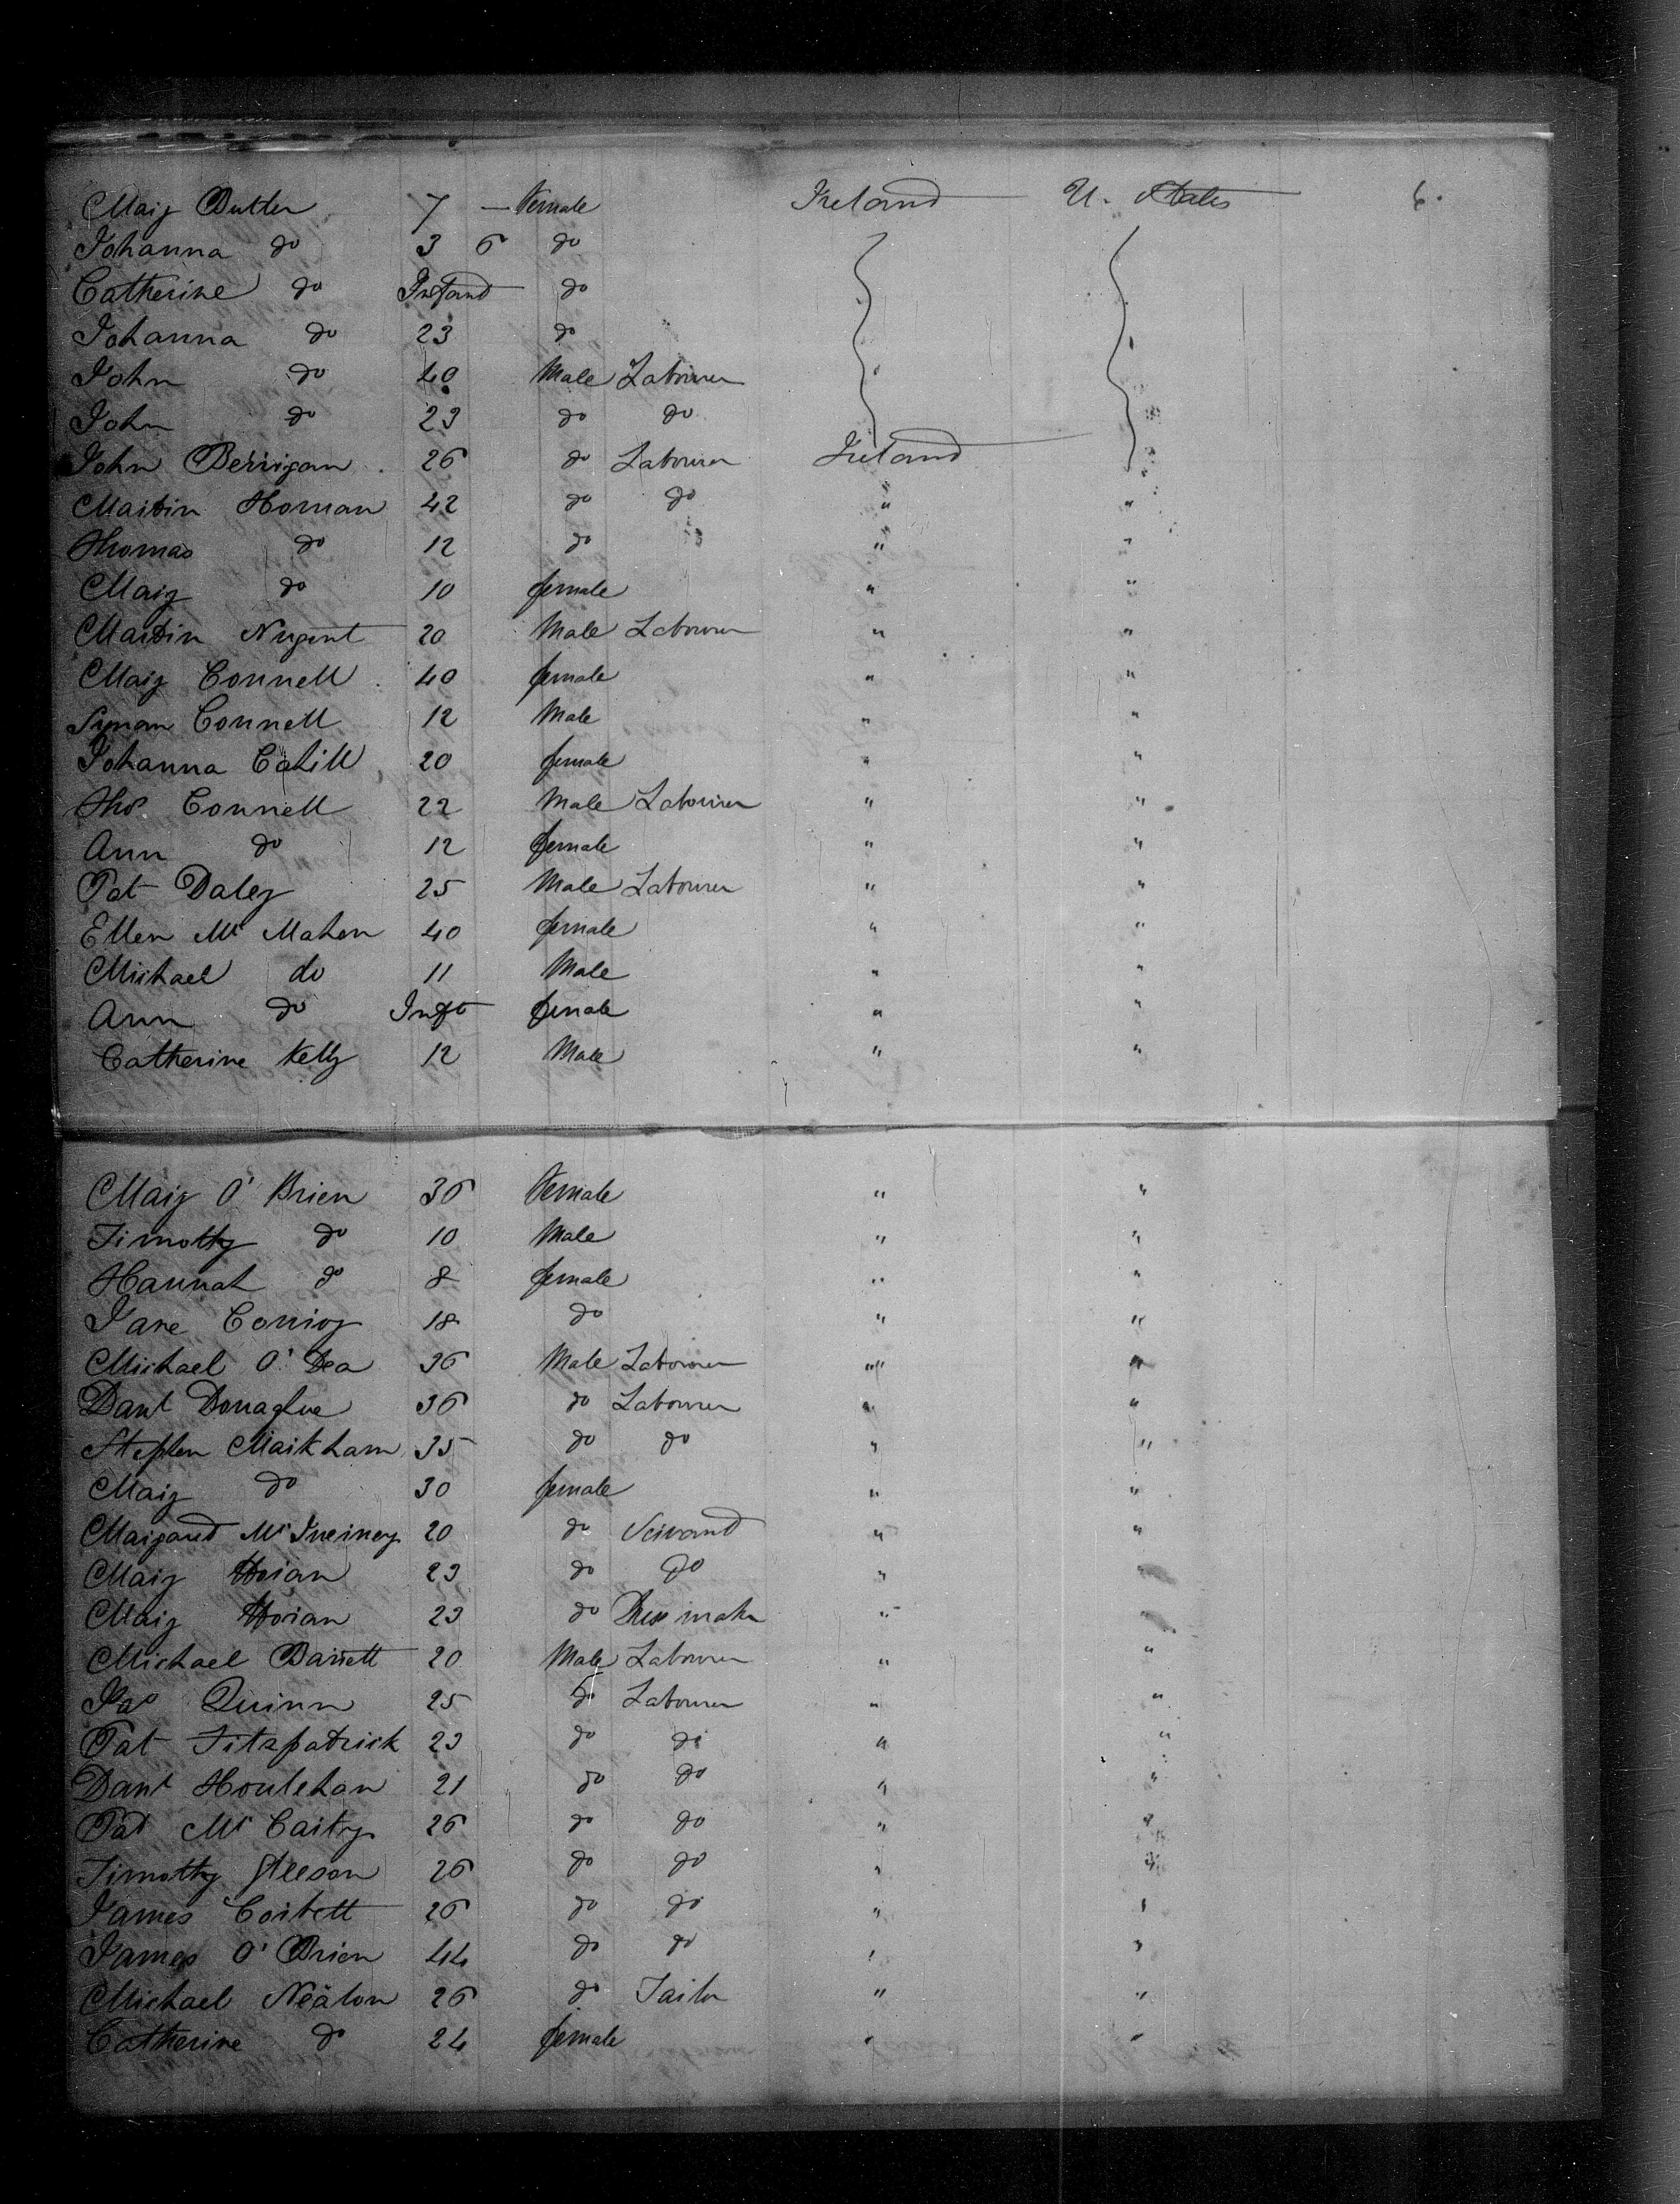 Mary Butler 7 — Female Ireland U. States 6.
Johanna do 3 6 do
Catherine do Infant do
Johanna do 23 do
John do 40 Male Labourer
John do 23 do do
John Berrigan 26 do Labourer Ireland
Martin Honan 42 do do " "
Thomas do 12 do " "
Mary do 10 female " "
Martin Nugent 20 Male Labourer " "
Mary Connell 40 female " "
Connell 12 Male " "
Johanna Cahill 20 female " "
Thos Connell 22 Male Labourer " "
Ann do 12 female " "
Pat Daley 25 Male Labourer " "
Ellen Mc Mahon 40 female " "
Michael do 11 Male " "
Ann do Inft female " "
Catherine Kelly 12 Male " "
Mary O' Brien 36 Female " "
Timothy do 10 Male " "
Hannah do 8 female " "
Jane Conroy 18 do " "
Michael O' Dea 36 Male Labourer " "
Danl Donaghue 36 do Labourer " "
Stephen Markham 35 do do " "
Mary do 30 female " "
Margaret Mc Inerney 20 do Servant " "
Mary Horan 23 do do " "
Mary Horan 23 do Dress maker " "
Michael Barrett 20 Male Labourer " "
Quinn 25 do Labourer " "
Pat Fitzpatrick 23 do do " "
Danl Houlehan 21 do do " "
Pat Mc Carty 26 do do " "
Timothy Gleeson 26 do do " "
James Corbett 26 do do " "
James O' Brien 44 do do " "
Michael Nealon 26 do Tailor " "
Catherine do 24 female " "